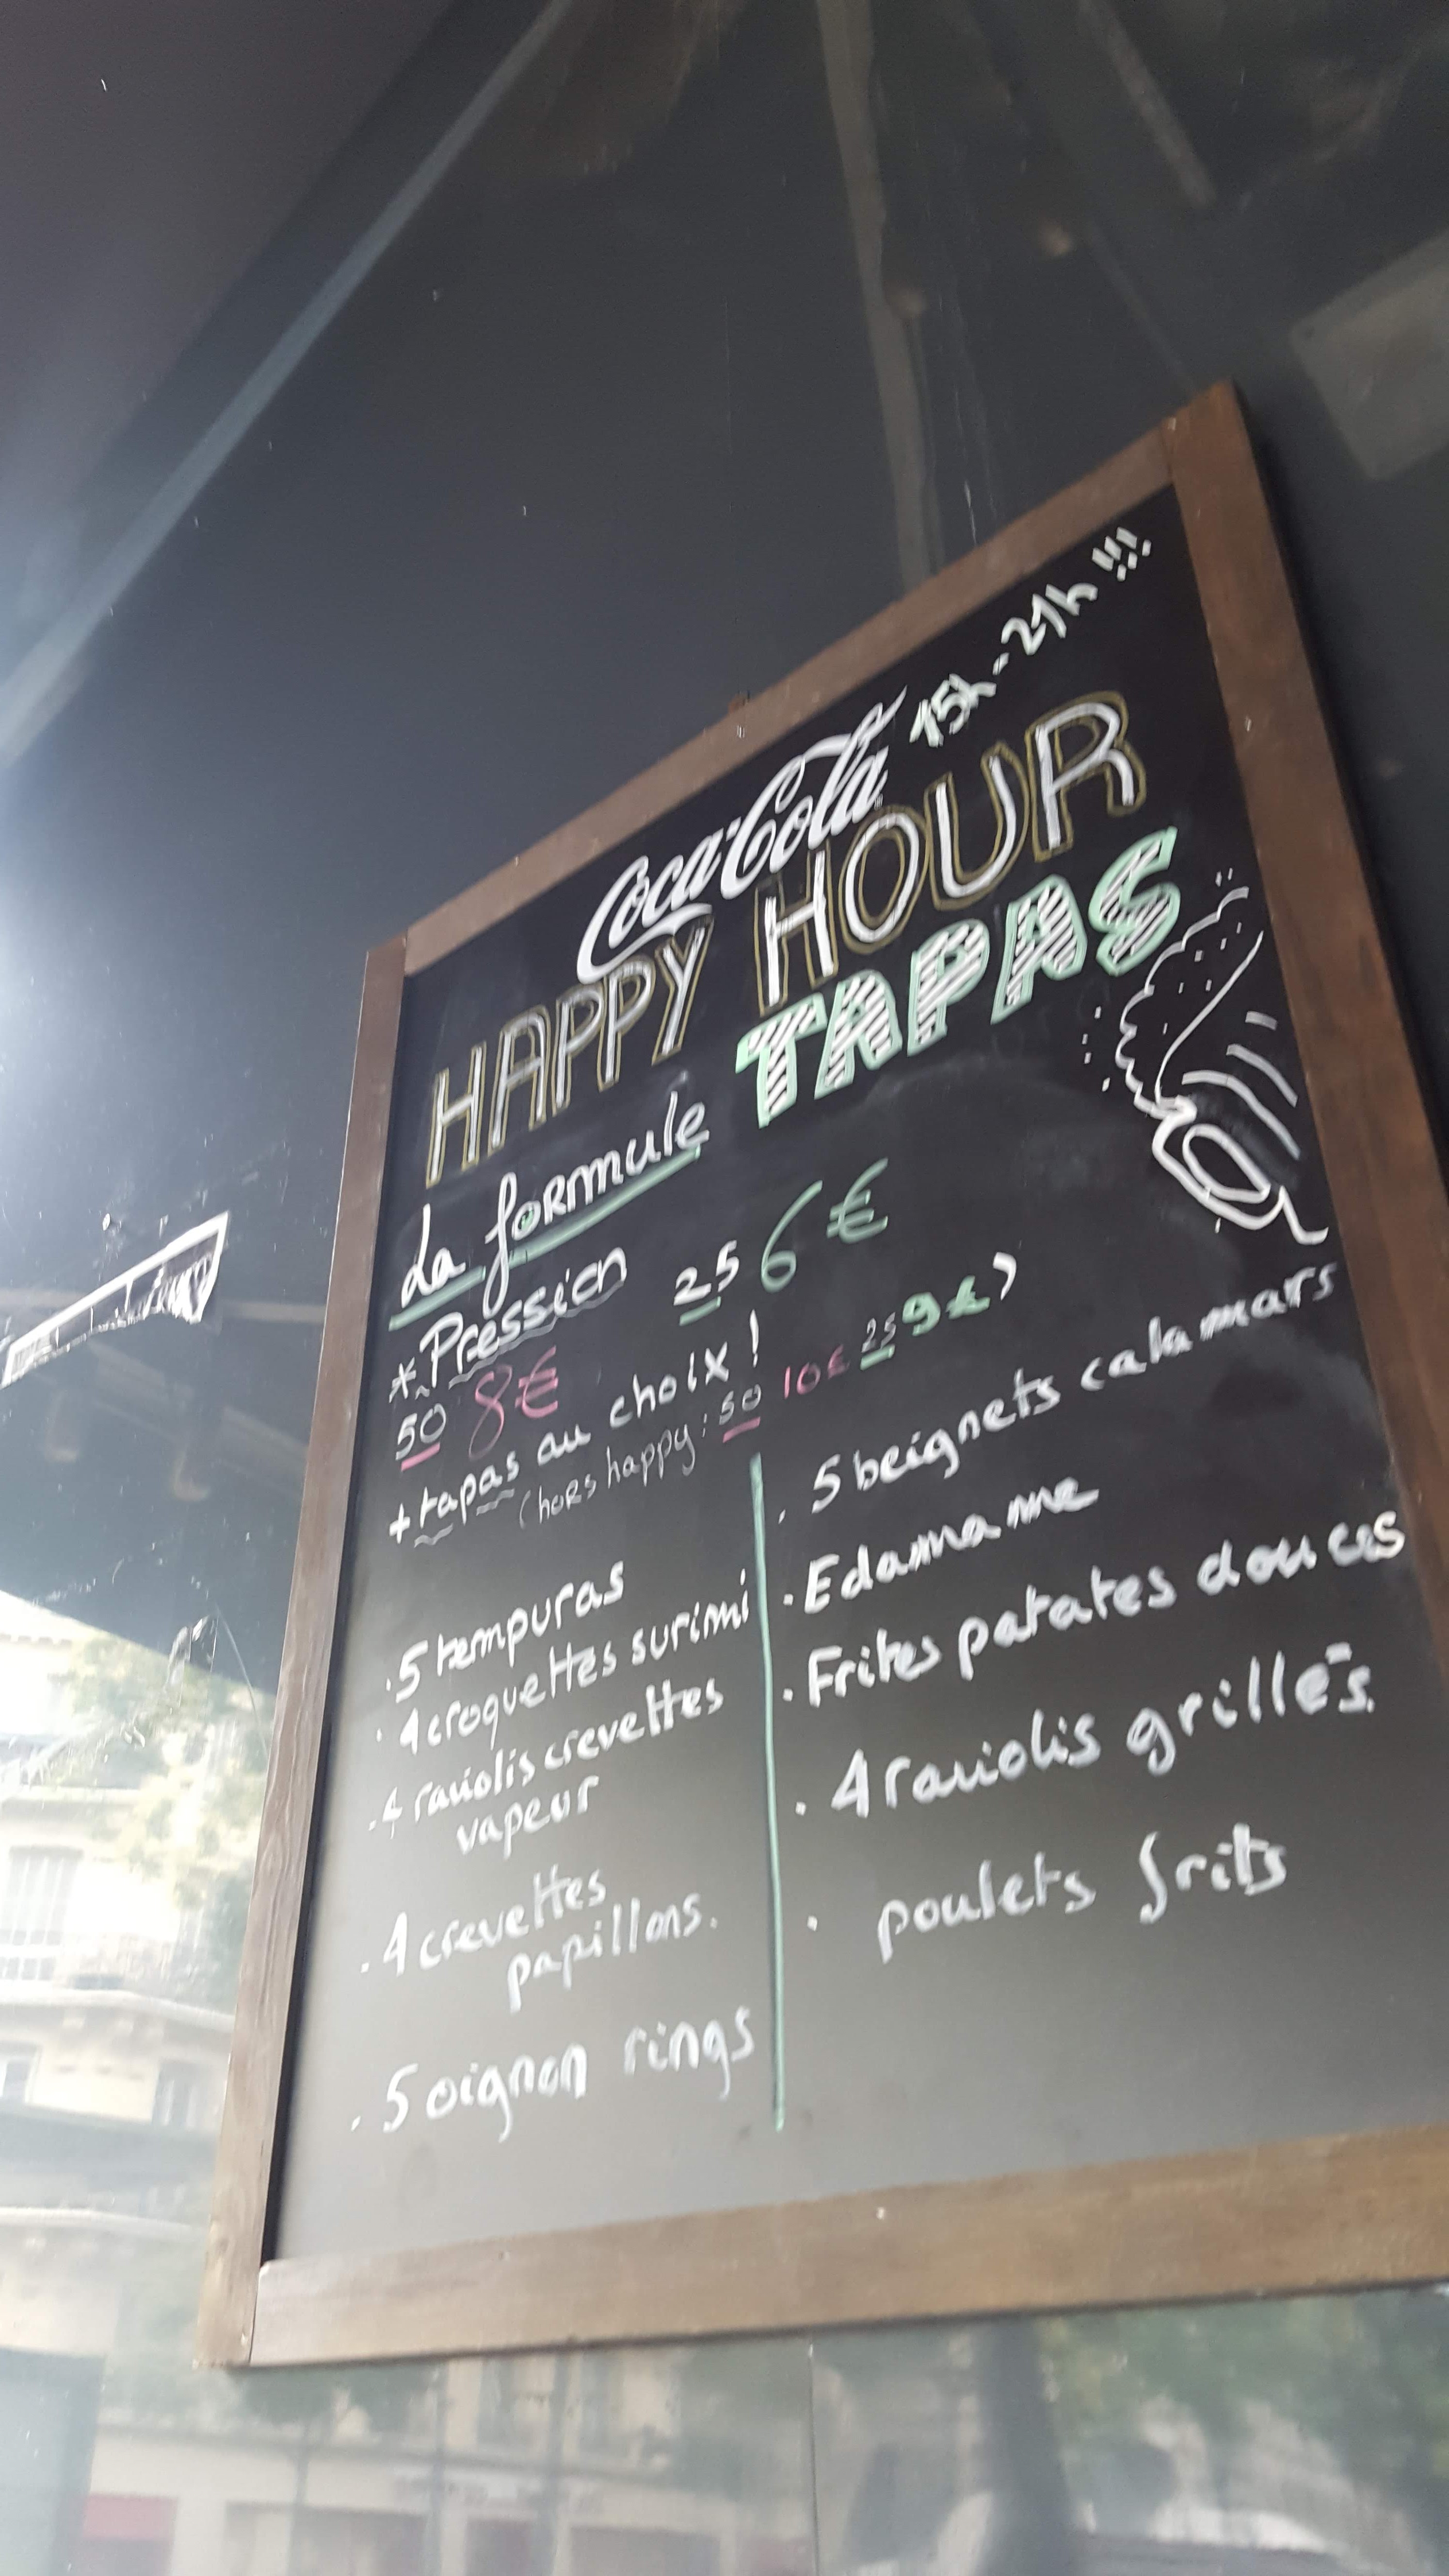 Coca-Cola 15h - 21h !!!
HAPPY HOUR
La formule TAPAS
*Pression 25 6€
50 8€
+ tapas au choix !
(hors happy : 50 10€ 25 9€)
. 5 tempuras
. 4 croquettes surimi
. 4 raviolis crevettes
vapeur
. 4 crevettes
papillons.
. 5 oignon rings
. 5 beignets calamars
. Edamame
. Frites patates douces
. 4 raviolis grillés.
. poulets frits